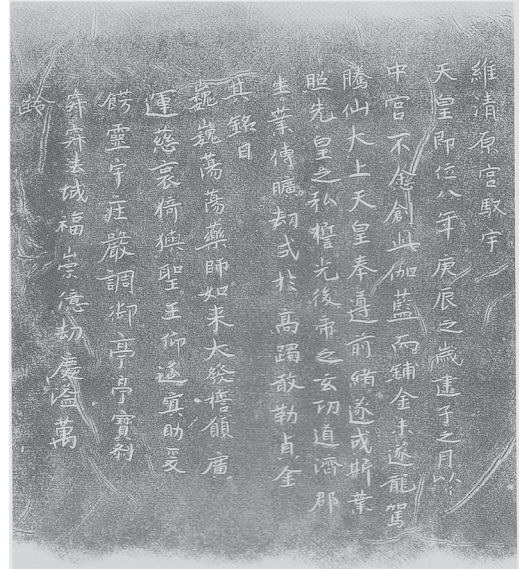 維清原宮馭宇
天皇即位八年庚辰之歲建子之月以
中宮不悆創此伽藍而鋪金未遂龍駕
騰仙大上天皇奉遵前緒遂成斯業
照先皇之私誓光後帝之玄功道濟郡
生業傳曠劫式於高躅敢勒貞金
其銘曰
巍巍蕩蕩藥師如来大發誓願廣
運慈哀猗㺞聖王仰邀冥助爰
餝靈宇莊嚴調御亭亭寶刹
寂寂法城福崇億劫慶溢萬
齡